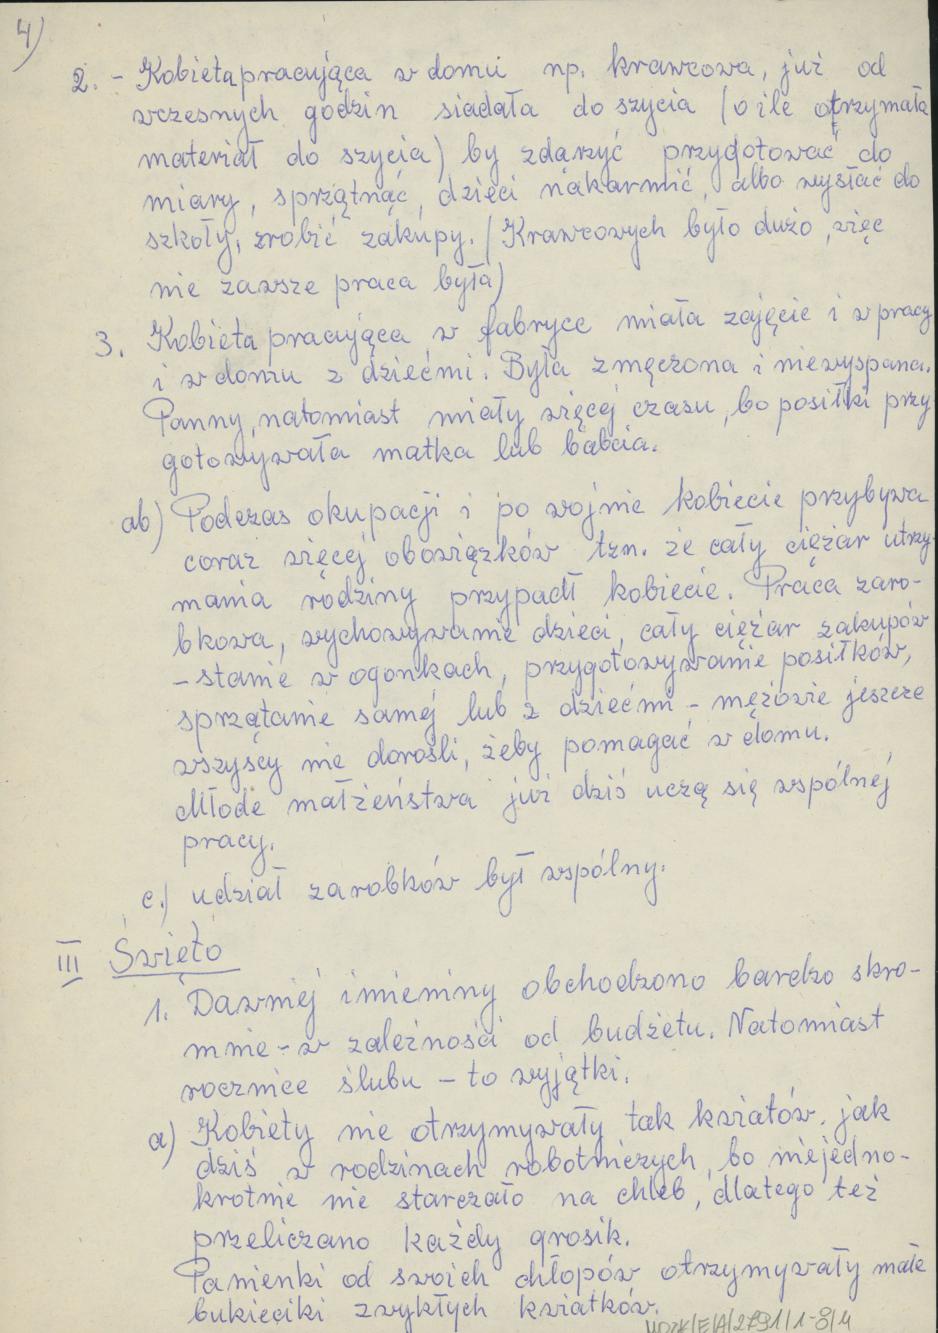 4)
2. - Kobieta pracująca w domu np. krawcowa, już od
wczesnych godzin siadała do szycia (o ile otrzymała
materiał do szycia) by zdążyć przygotować do
miary, sprzątnąć, dzieci nakarmić, albo wysłać do
szkoły, zrobić zakupy. (Krawcowych było dużo, więc
nie zawsze praca była)
3. Kobieta pracująca w fabryce miała zajęcie i w pracy
i w domu z dziećmi. Była zmęczona i niewyspana.
Panny, natomiast miały więcej czasu, bo posiłki przy
gotowywała matka lub babcia.
ab) Podczas okupacji i po wojnie kobiecie przybywa
coraz więcej obowiązków tzn. że cały ciężar utrzy-
mania rodziny przypadł kobiecie. Praca zaro-
bkowa, wychowywanie dzieci, cały ciężar zakupów
- stanie w ogonkach, przygotowywanie posiłków,
sprzątanie samej lub z dziećmi - mężowie jeszcze
wszyscy nie dorośli, żeby pomagać w domu.
Młode małżeństwa już dziś uczą się wspólnej
pracy.
c.) udział zarobków był wspólny.
III Święto
1. Dawniej imieniny obchodzono bardzo skro-
mnie - w zależności od budżetu. Natomiast
rocznice ślubu - to wyjątki.
a) Kobiety nie otrzymywały tak kwiatów, jak
dziś w rodzinach robotniczych, bo niejedno-
krotnie nie starczało na chleb, dlatego też
przeliczano każdy grosik.
Panienki od swoich chłopów otrzymywały małe
bukieciki zwykłych kwiatków.
/E/A/2791/1-8/4